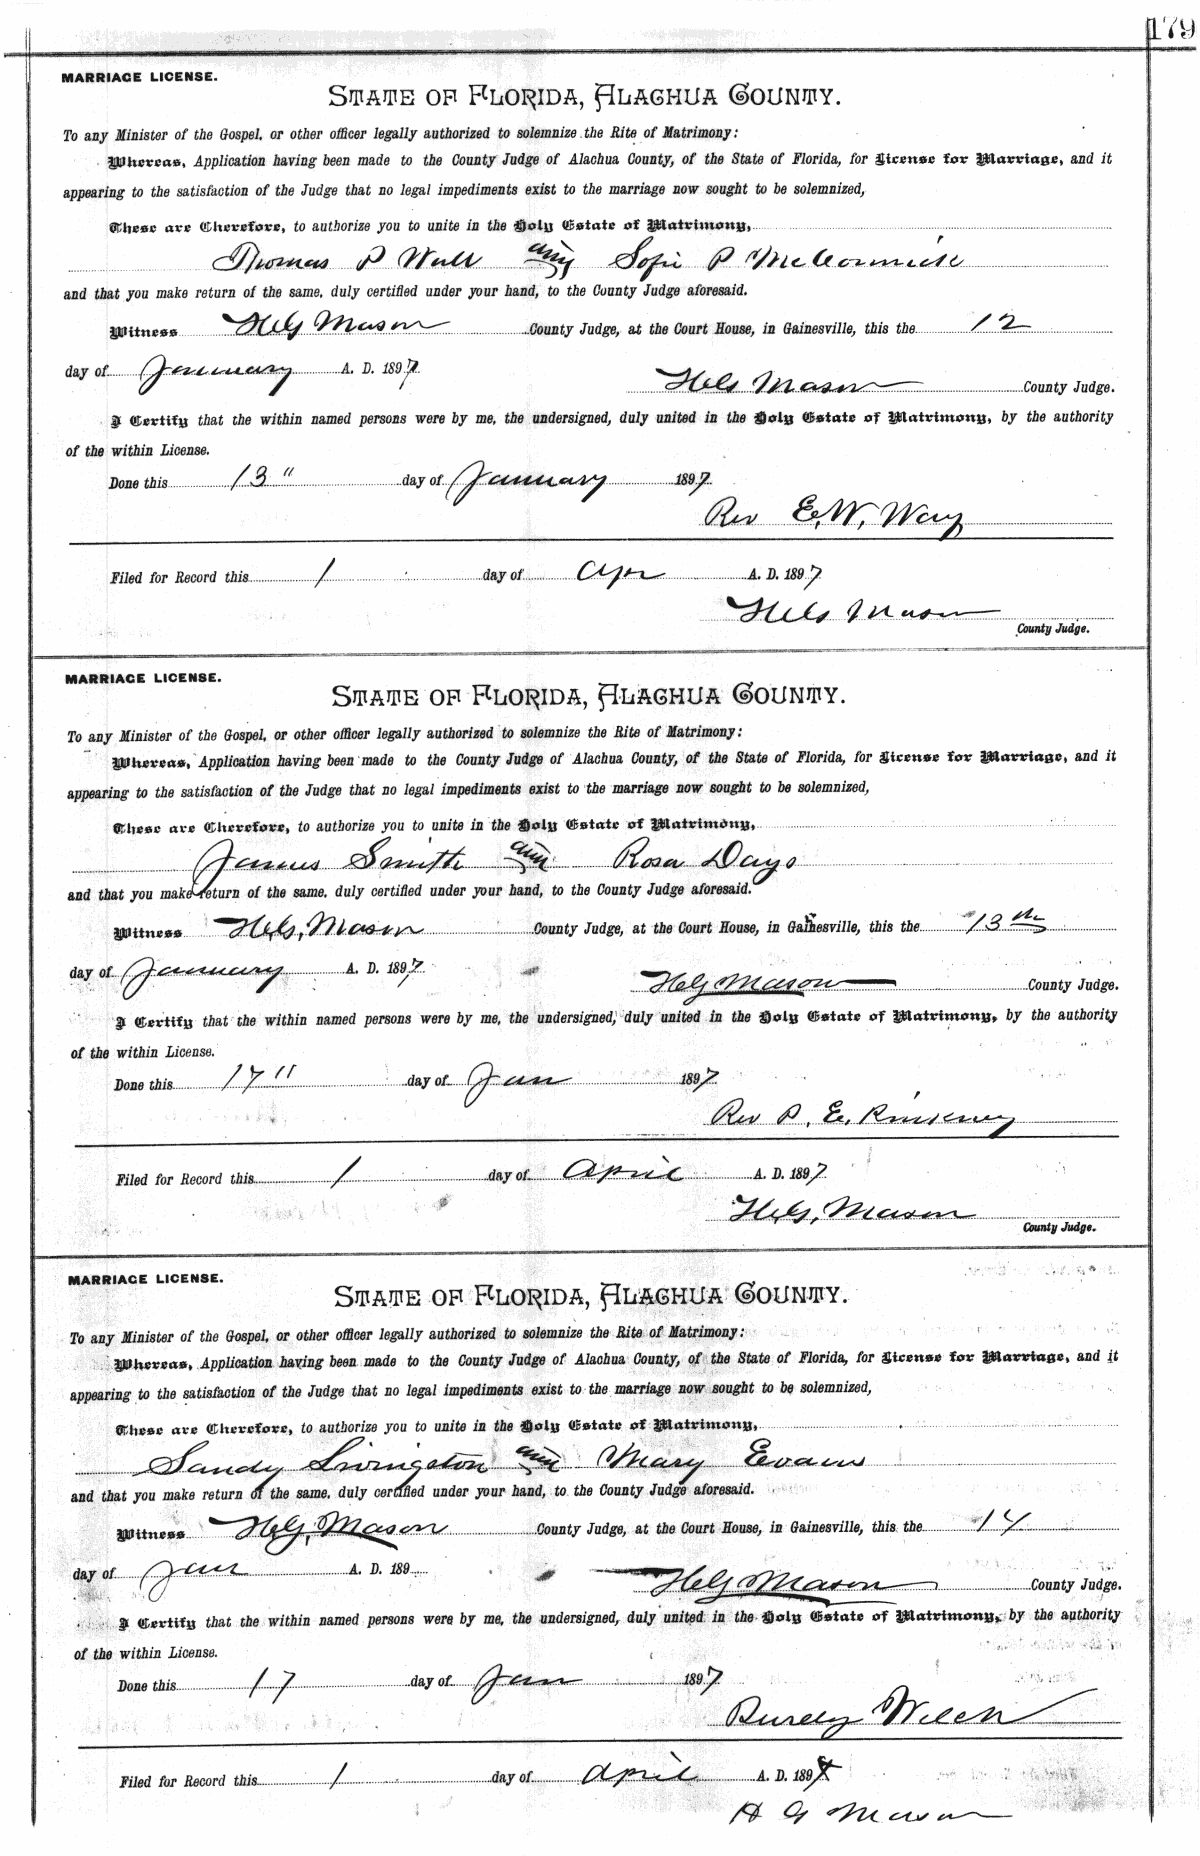 179
MARRIAGE LICENSE.
STATE OF FLORIDA, ALACHUA COUNTY.
To any Minister of the Gospel, or other officer legally authorized to solemnize the Rite of Matrimony:
Whereas, Application having been made to the County Judge of Alachua County, of the State of Florida, for License for Marriage, and it
appearing to the satisfaction of the Judge that no legal impediments exist to the marriage now sought to be solemnized,
These are Therefore, to authorize you to unite in the Holy Estate of Matrimony,
Thomas P Wall and Sofie P McCormick
and that you make return of the same, duly certified under your hand, to the County Judge aforesaid.
Witness H.G. Mason County Judge, at the Court House, in Gainesville, this the 12
day of January A. D. 1897
H.G. Mason County Judge.
I Certify that the within named persons were by me, the undersigned, duly united in the Holy Estate of Matrimony, by the authority
of the within License.
Done this 13" day of January 1897
Rev E. W. Way
Filed for Record this 1 day of Apr A. D. 1897
H.G. Mason
County Judge.
MARRIAGE LICENSE.
STATE OF FLORIDA, ALACHUA COUNTY.
To any Minister of the Gospel, or other officer legally authorized to solemnize the Rite of Matrimony:
Whereas, Application having been made to the County Judge of Alachua County, of the State of Florida, for License for Marriage, and it
appearing to the satisfaction of the Judge that no legal impediments exist to the marriage now sought to be solemnized,
These are Therefore, to authorize you to unite in the Holy Estate of Matrimony,
James Smith and Rosa Days
and that you make return of the same, duly certified under your hand, to the County Judge aforesaid.
Witness H.G. Mason County Judge, at the Court House, in Gainesville, this the 13th
day of January A. D. 1897
H G Mason County Judge.
I Certify that the within named persons were by me, the undersigned, duly united in the Holy Estate of Matrimony, by the authority
of the within License.
Done this 17" day of Jan 1897
Rev P. E. Pinkney
Filed for Record this 1 day of April A. D. 1897
H.G. Mason
County Judge.
MARRIAGE LICENSE.
STATE OF FLORIDA, ALACHUA COUNTY.
To any Minister of the Gospel, or other officer legally authorized to solemnize the Rite of Matrimony:
Whereas, Application having been made to the County Judge of Alachua County, of the State of Florida, for License for Marriage, and it
appearing to the satisfaction of the Judge that no legal impediments exist to the marriage now sought to be solemnized,
These are Therefore, to authorize you to unite in the Holy Estate of Matrimony,
Sandy Livingston and Mary Evans
and that you make return of the same, duly certified under your hand, to the County Judge aforesaid.
Witness H.G. Mason County Judge, at the Court House, in Gainesville, this the 14
day of Jan A. D. 189
H G Mason County Judge.
I Certify that the within named persons were by me, the undersigned, duly united in the Holy Estate of Matrimony, by the authority
of the within License.
Done this 17 day of Jan 1897
Welch
Filed for Record this 1 day of April A. D. 189
H G Mason